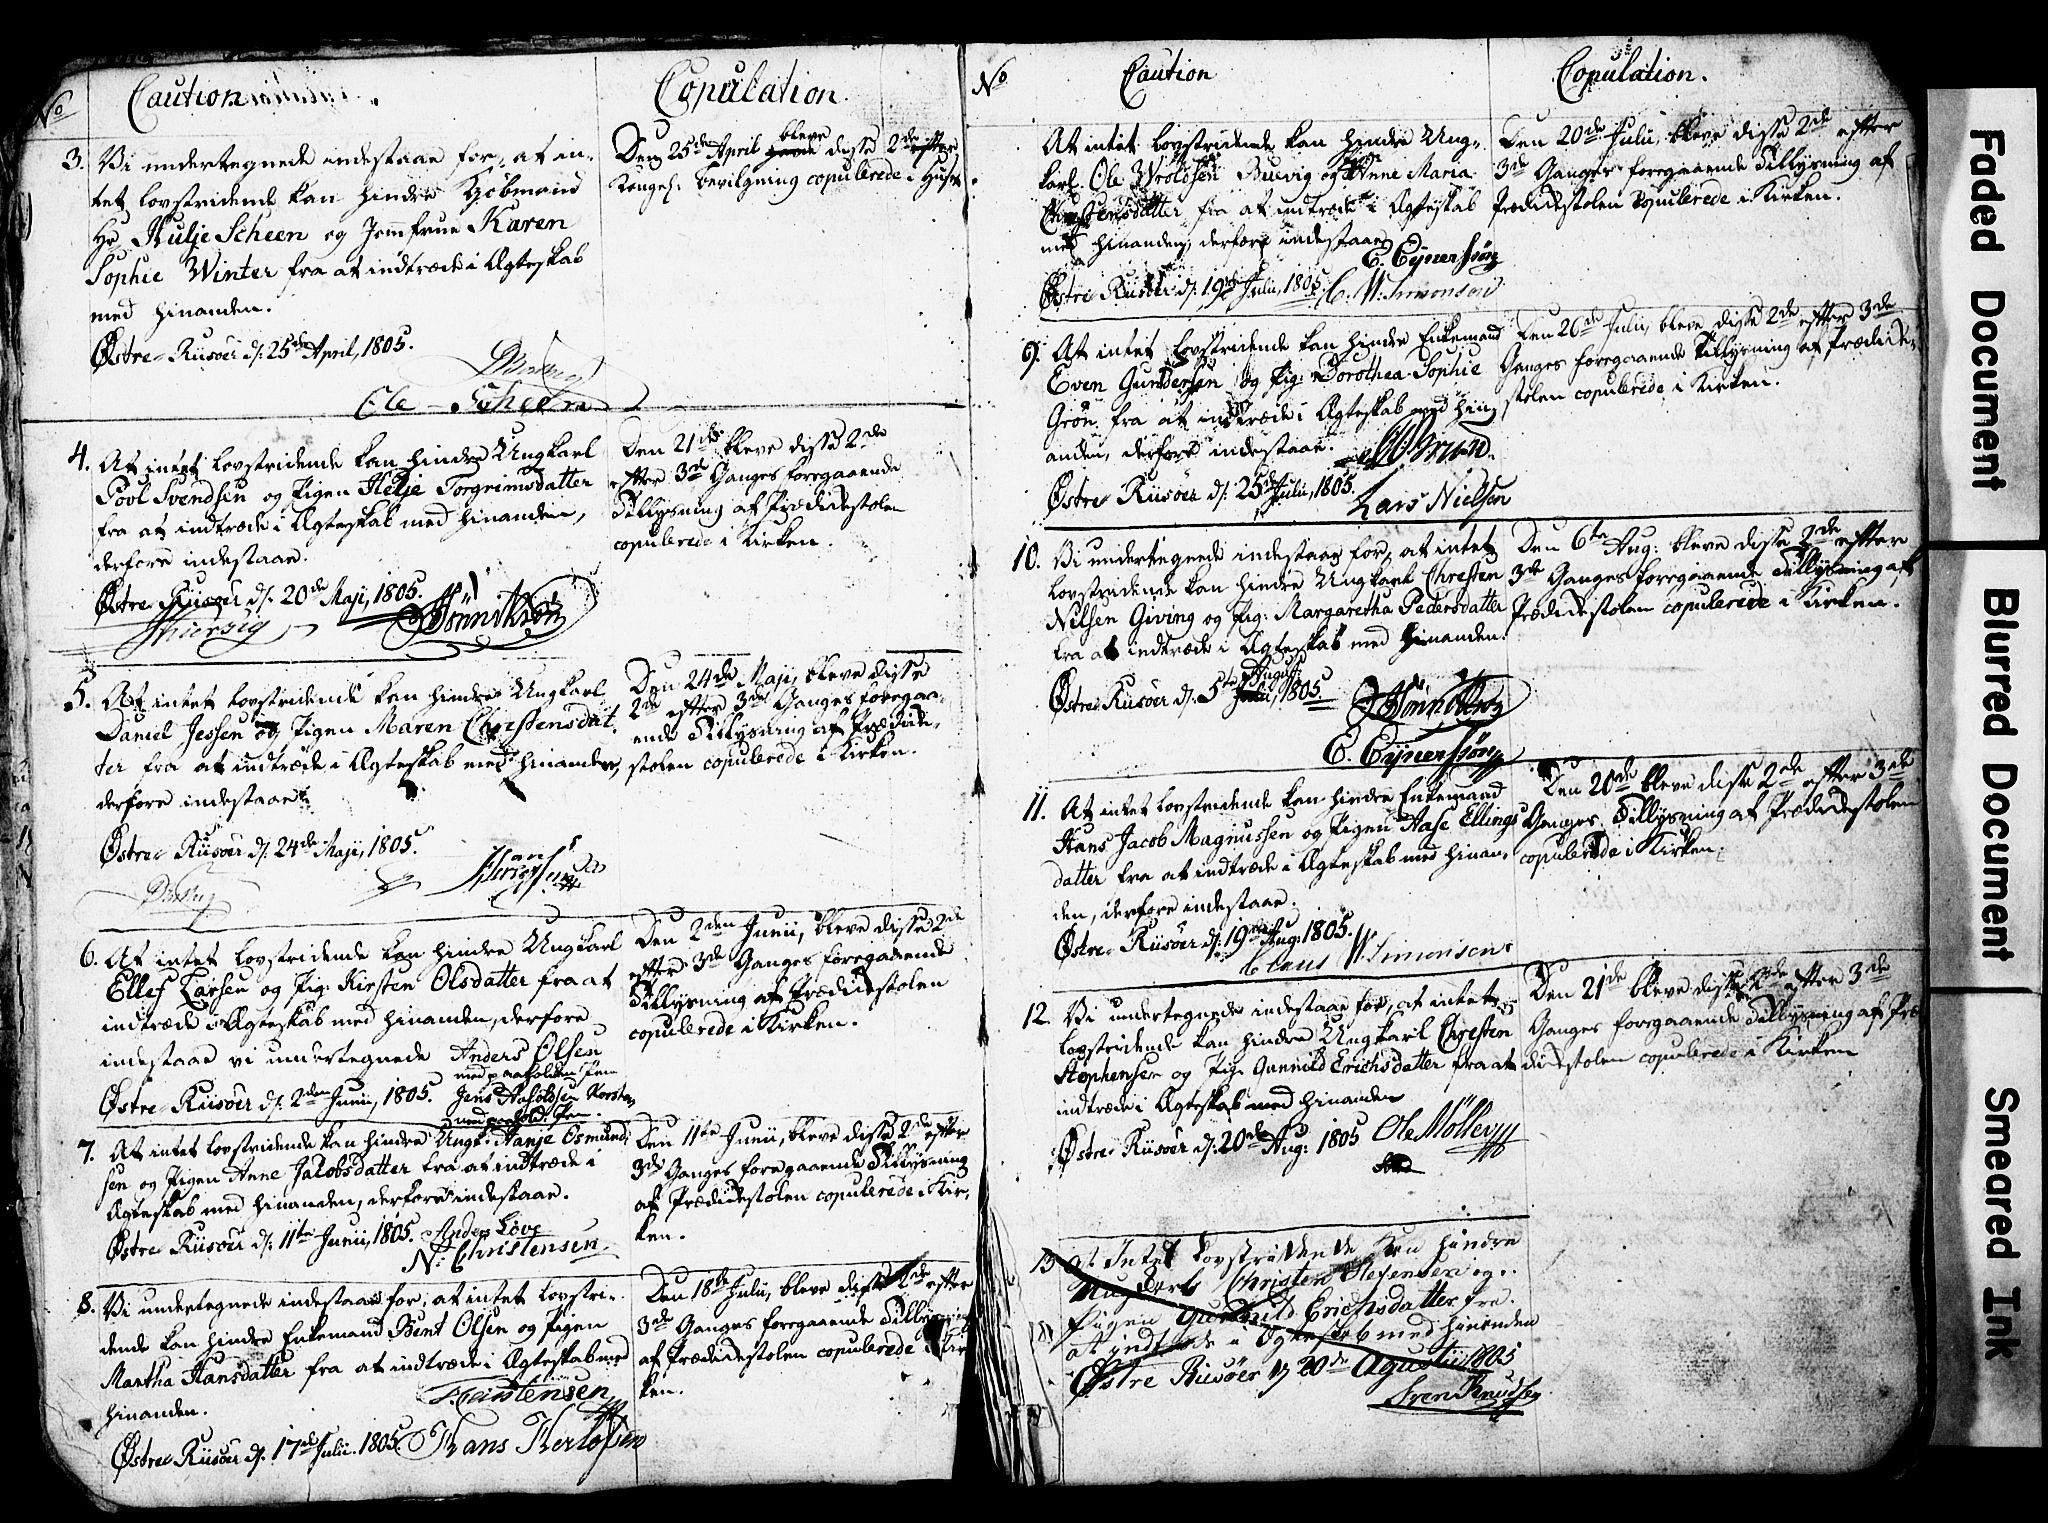 No Caution Copulation.
3. Vi undertegnede indestaae for, at in-
tet lovstridende kan hindre Kjöbmand
Hr Hulje Scheen og Jomfrue Karen
Sophie Winter fra at indtræde i Ægteskab
med hinanden.
Östre Riisöer d: 25de April, 1805.
Ole Scheen
Den 25de April bleve disse 2de efter
Kongel: bevilgning copulerede i Huset
4. At intet lovstridende kan hindre Ungkarl
Povl Svendsen og Pigen Helje Torgrimsdatter
fra at indtræde i Ægteskab med hinanden,
derfore indestaae.
Östre Riisöer d: 20de Maji, 1805.
Den 21de bleve disse 2de
efter 3de Ganges foregaaende
Tillysning af Prædikestolen
copulerede i Kirken.
5. At intet lovstridende kan hindre Ungkarl
Daniel Jessen og Pigen Maren Chrestensdat-
ter fra at indtræde i Ægteskab med hinanden,
derfore indestaae
Östre Riisöer d: 24de Maji, 1805.
Den 24de Maji, bleve disse
2de efter 3de Ganges foregaa-
ende Tillysning af Prædike-
stolen copulerede i Kirken.
6. At intet lovstridende kan hindre Ungkarl
Ellef Larsen og Pig: Kirsten Olsdatter fra at
indtræde i Ægteskab med hinanden, derfore
indestaae vi undertegnede Anders Olsen
med paaholden Pen
Östre Riisöer d: 2den Junii, 1805. Jens
med paahold: Pen.
Den 2den Junii, bleve disse 2de
efter 3de Ganges foregaaende
Tillysning af Prædikestolen
copulerede i Kirken.
7. At intet lovstridende kan hindre Ungk: Hanje Osmund-
sen og Pigen Anne Jacobsdatter fra at indtræde i
Ægteskab med hinanden, derfore indestaae.
Östre Riisöer d: 11te Junii, 1805. Anders Löve
N: Christensen.
Den 11te Junii, bleve disse 2de efter
3de Ganges foregaaende Tillysning
af Prædikestolen copulerede i Kir-
ken.
8. Vi undertegnede indestaae for, at intet lovstri-
dende kan hindre Enkemand Bent Olsen og Pigen
Martha Hansdatter fra at indtræde i Ægteskab med
hinanden.
Östre Riisöer d: 17de Julii. 1805. Hans Kerlofsen
Den 18de Julii, bleve disse 2de efter
3de Ganges foregaaende Tillysning
af Prædikestolen copulerede i Kir-
ken.
No Caution Copulation.
At intet lovstridende kan hindre Ung-
karl Ole Wroldsen Buevig og Anne Maria
Chrestensdatter fra at indtræde i Ægteskab
med hinanden, derfore indestaae
E. Eynerssön
Östre Riisöer d: 19de Julii, 1805. C. W. Simonsen
Den 20de Julii, bleve disse 2de efter
3de Ganges foregaaende Tillysning af
Prædikestolen copulerede i Kirken.
9. At intet lovstridende kan hindre Enkemand
Even Gundersen og Pig: Dorothea Sophie
Grön fra at indtræde i Ægteskab med hin-
anden, derfore indestaae.
Östre Riisöer d: 25de Julii, 1805. Lars Nielsen
Den 26de Julii, bleve disse 2de efter 3de
Ganges foregaaende Tillysning af Prædike-
stolen copulerede i Kirken.
10. Vi undertegnede indestaae for, at intet
lovstridende kan hindre Ungkarl Chresten
Nilsen Giving og Pig: Margaretha Pedersdatter
fra at indtræde i Ægteskab med hinanden.
August
Östre Riisöer d: 5te Julii, 1805.
E. Eynerssön
Den 6te Aug: bleve disse 2de efter
3de Ganges foregaaende Tillysning af
Prædikestolen copulerede i Kirken.
11. At intet lovstridende kan hindre Enkemand
Hans Jacob Magnussen og Pigen Aase Ellings
datter fra at indtræde i Ægteskab med hinan-
den, derfore indestaae.
Östre Riisöer d: 19de Aug: 1805.
Claus W. Simonsen
Den 20de bleve disse 2de efter 3de
Ganges Tillysning af Prædikestolen
copulerede i Kirken.
12. Vi undertegnede indestaae for, at intet
lovstridende kan hindre Ungkarl Chresten
Stephensen og Pig: Gunnild Erichsdatter fra at
indtræde i Ægteskab med hinanden
Östre Riisöer d: 20de Aug: 1805 Ole Möller
Den 21de bleve disse 2de efter 3de
Ganges foregaaende Tillysning af Præ
dikestolen copulerede i Kirken
13 at Intet Lovstridende kan hindre
Ungkarl Christen Stefensen og
Pigen Gunnild Erichsdatter fra
at indtræde i Egteskab med hinanden
Östre Riisöer d 20de Agustii 1805
Sven Knudsen
Faded Document
Blurred Document
Smeared Ink